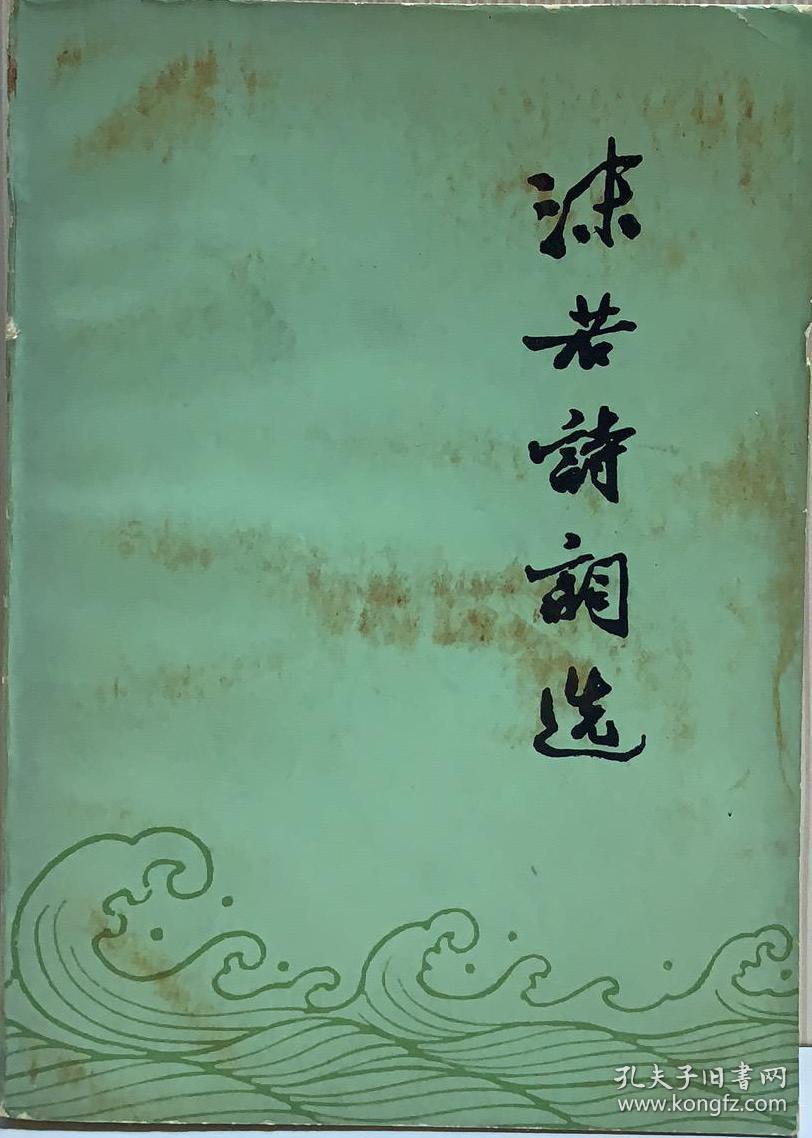 沫若詩詞选
孔夫子旧書网
www.kongfz.com